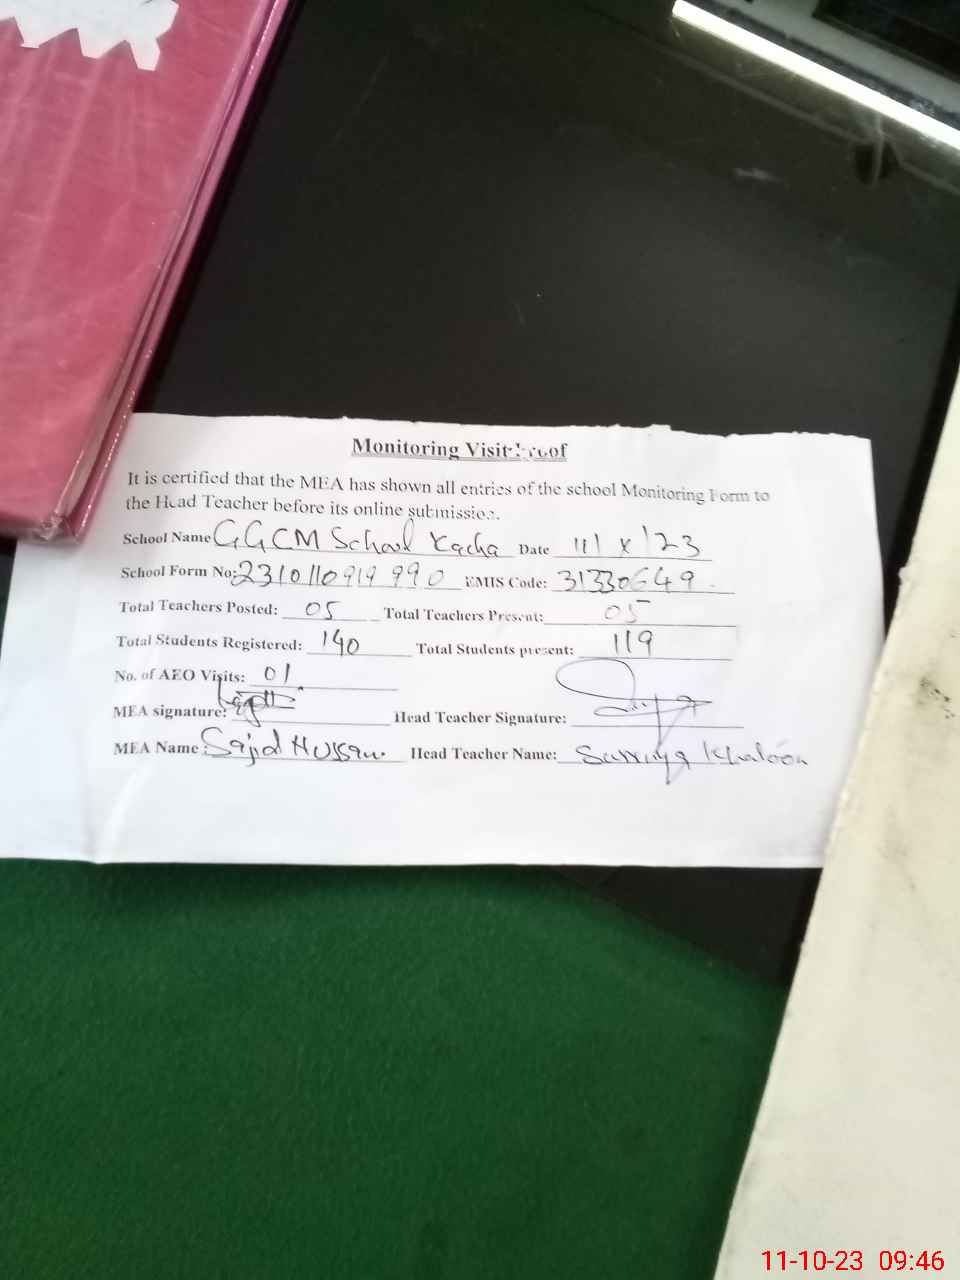 Monitoring Visit Proof
It is certified that the MEA has shown all entries of the school Monitoring Form to
the Head Teacher before its online submission.
School Name GGCM School Kacha Date 11/X/23
School Form No: 2310110919990 EMIS Code: 31330649
Total Teachers Posted: 05 Total Teachers Present: 05
Total Students Registered: 140 Total Students present: 119
No. of AEO Visits: 01
MEA signature: Head Teacher Signature:
MEA Name: Sajid Hussain Head Teacher Name: Khatoon
11-10-23 09:46